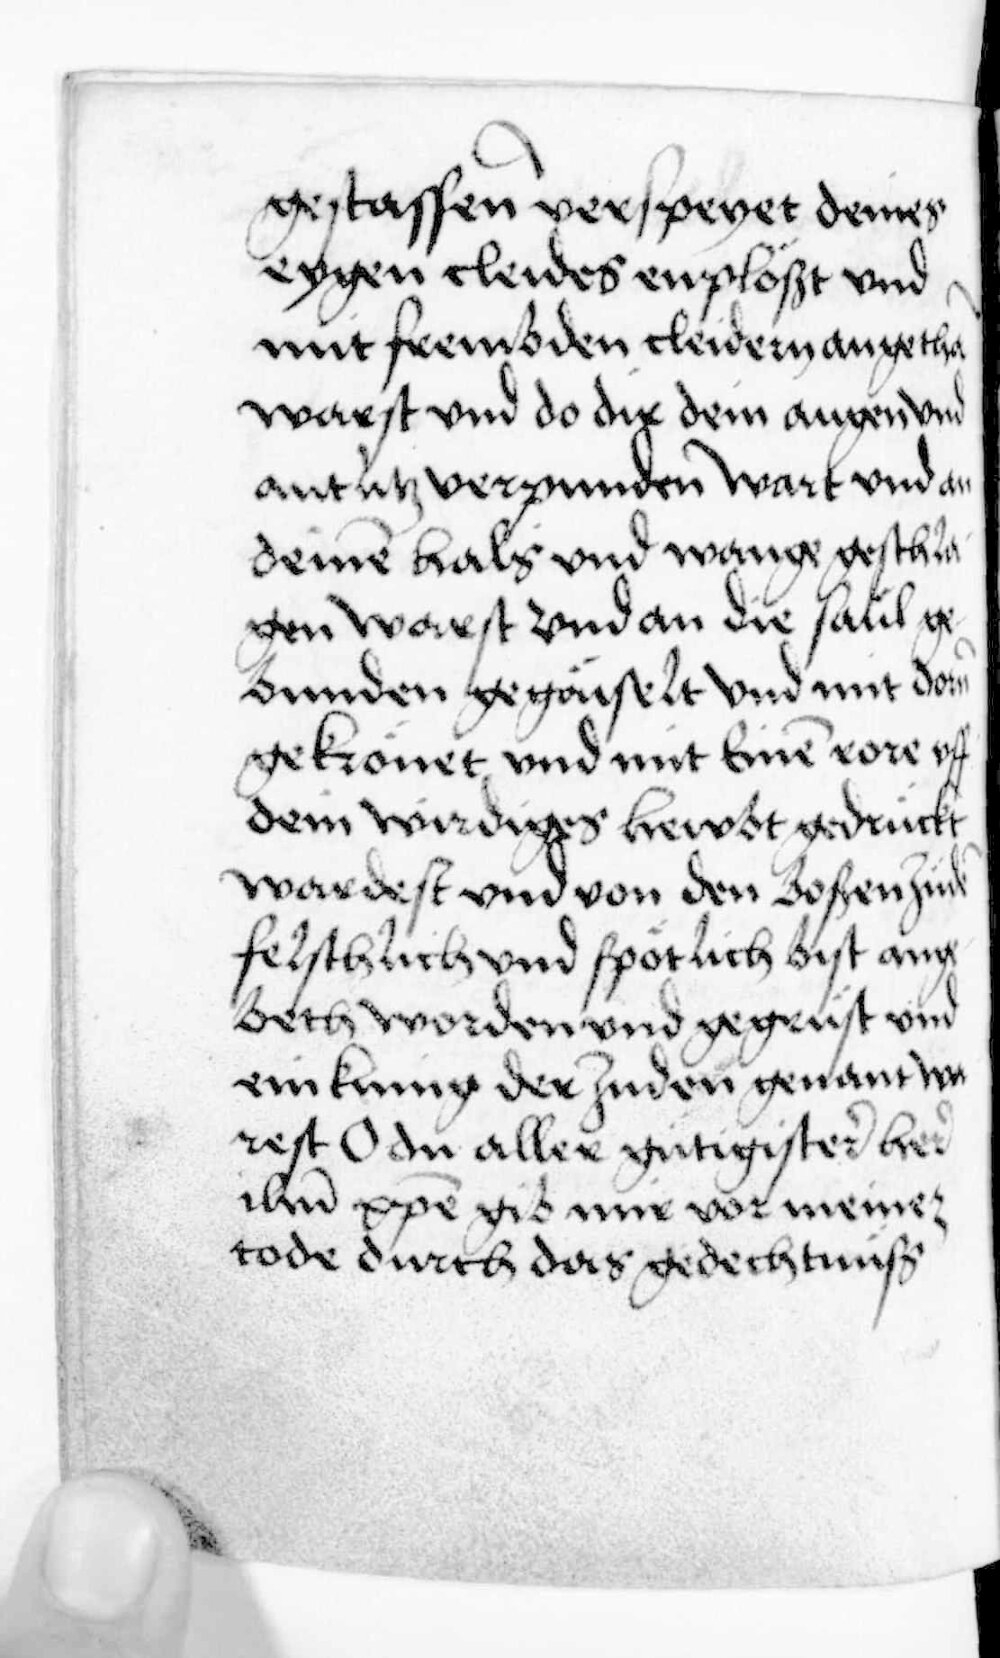 gestassen̄ verspeyet deines
eygen cleides enplößt vnd
mit frembden cleidern angethā
warst vnd do dir dein augen vnd
antlitz verpunden wart vnd an
deinē hals vnd wange geschla
gen warst vnd an die saul ge
bunden gegäuselt vnd mit dorn̄
gekrönet vnd mit Einē rore vff
dein wirdiges hewbt gedruckt
wardest vnd von den boßen Judē
felschlich vnd spötlich bist ange
beth worden vnd gegrüst vnd
ein kunig der Juden genant wa
rest O du aller gutigister̄ her̄
ihū xp̄e gib mir vor meinez
tode durch das gedechtnuß